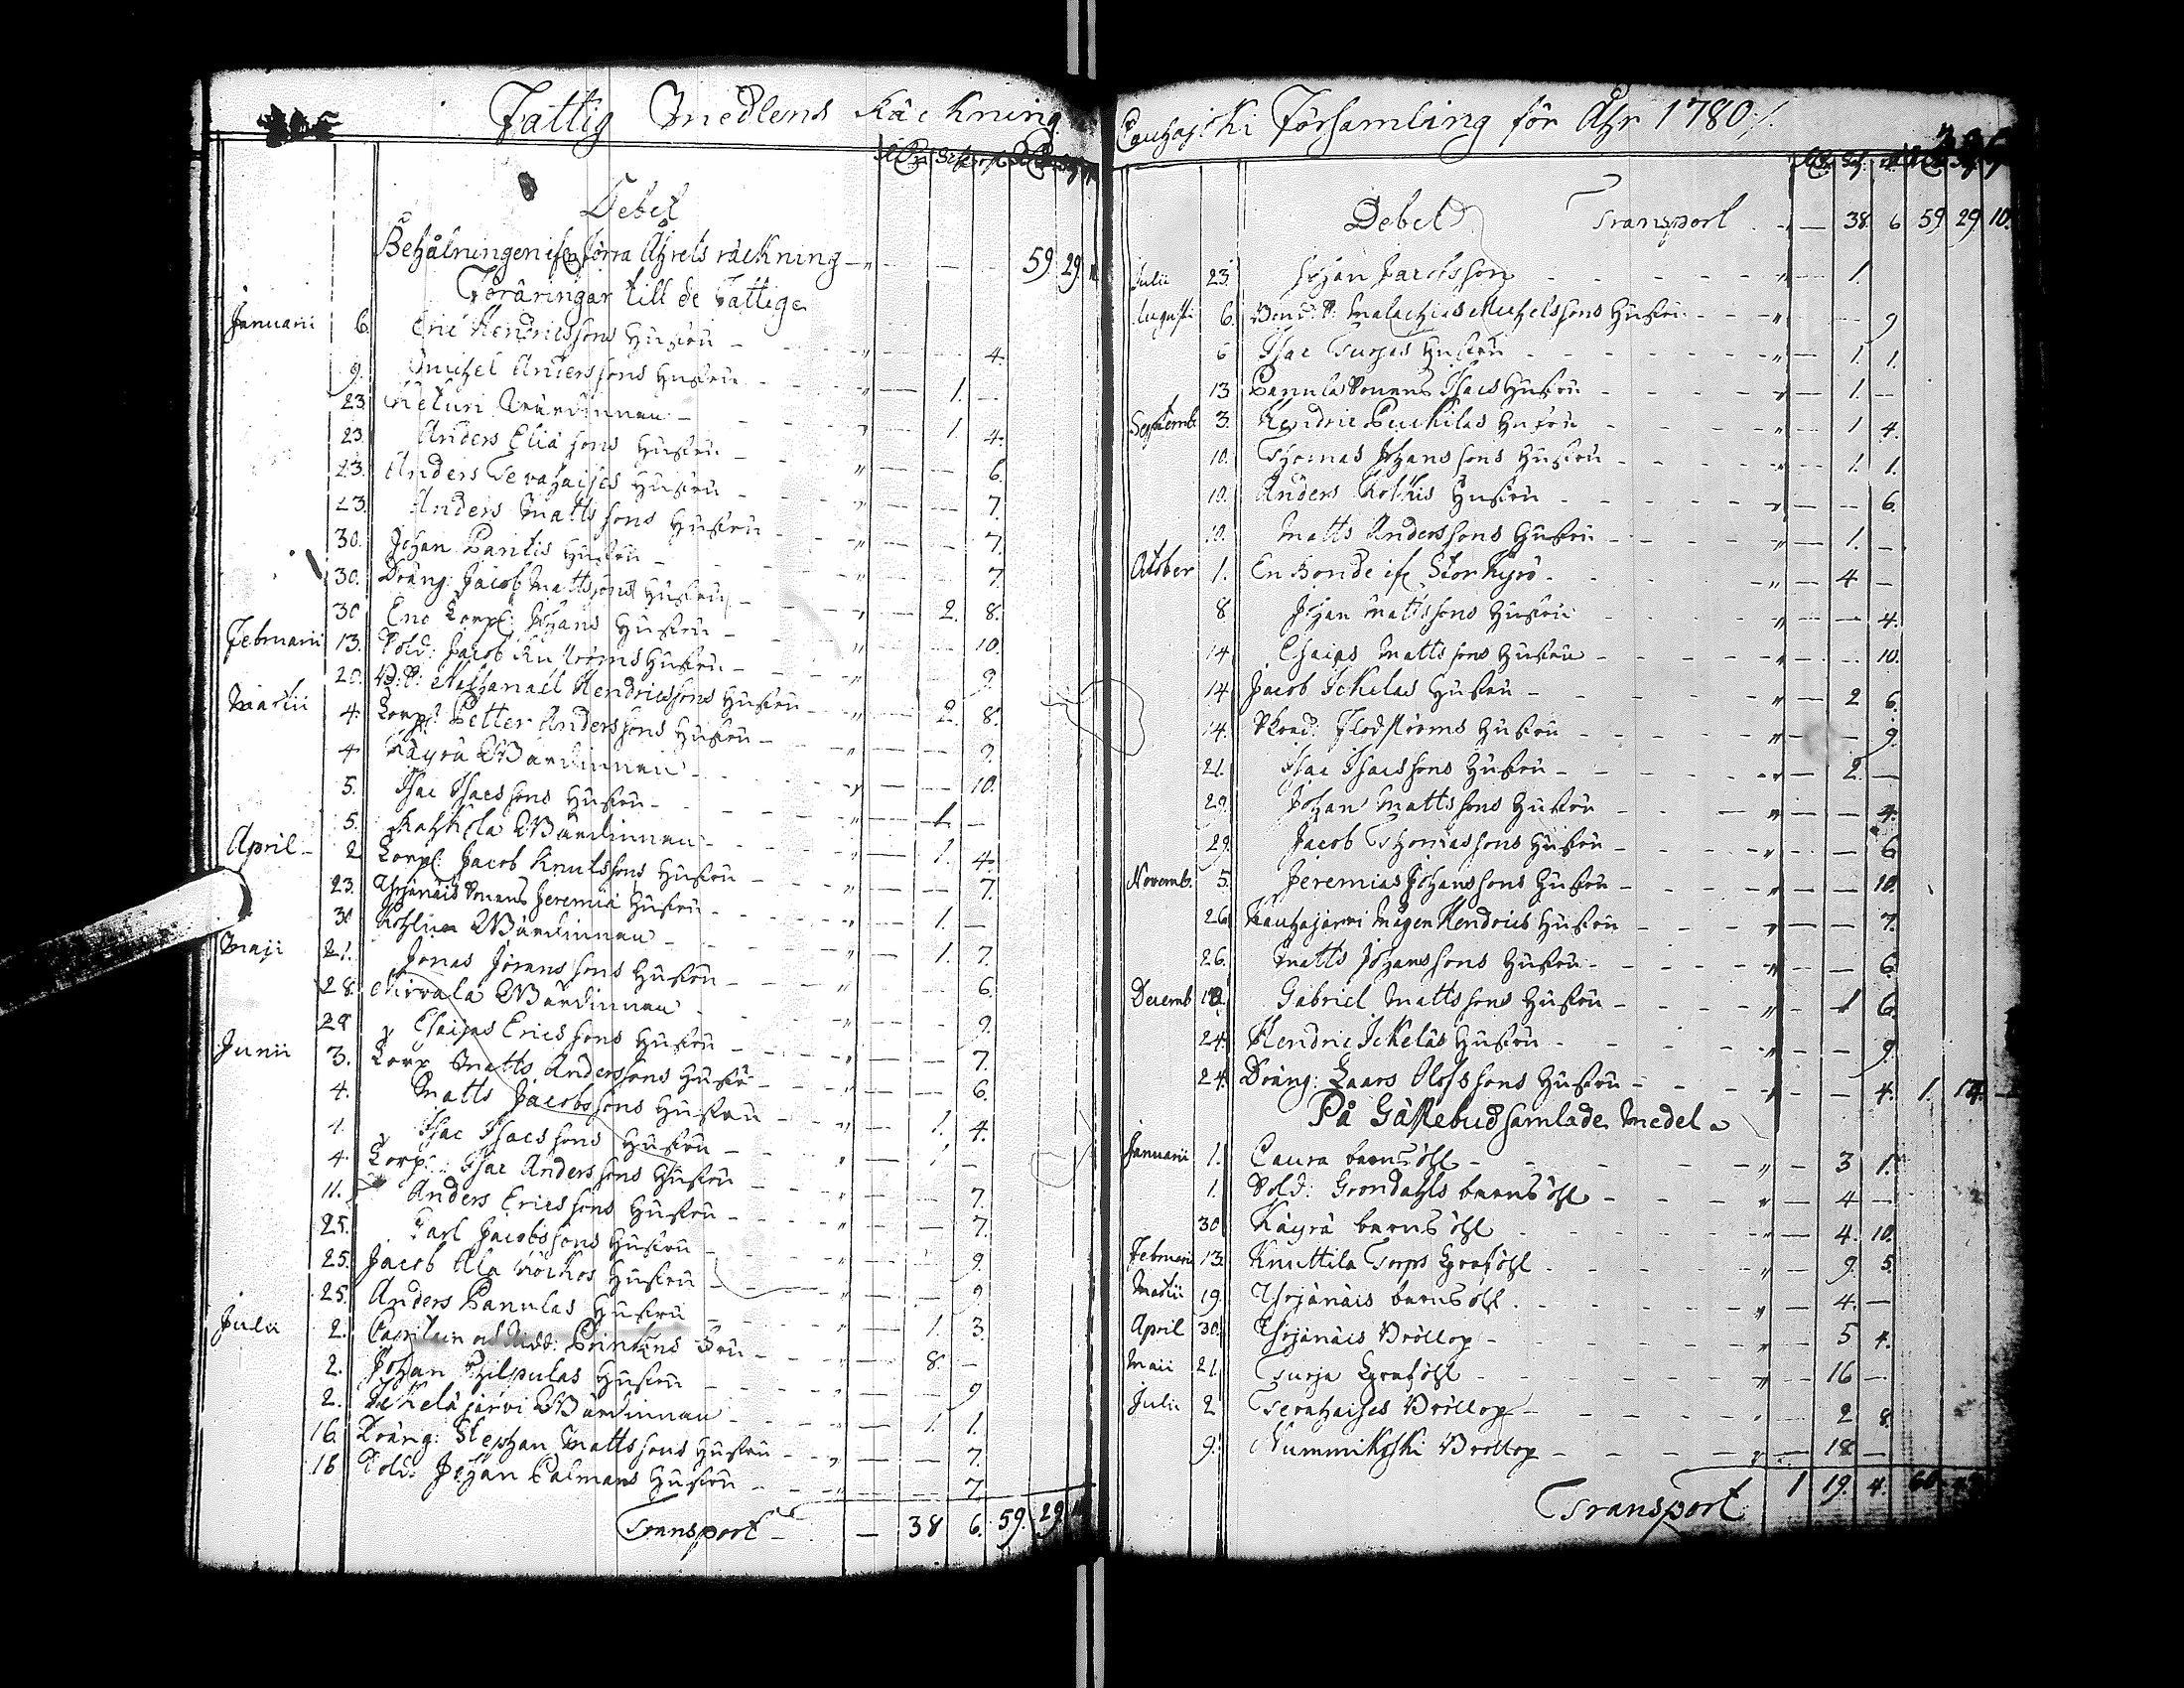 Fattig Medlens Räckning
Debet
Behålningen if förra Åhrets räckning — 59 29
Föräringar till de Fattige
Januarii 6. Eric Hendricssons Hustru — 4.
9. Michel Anderssons Hustru — 1. —
23 Keturi Wärdinnan — 1. 4.
23. Anders Eliæ sons Hustru — 6.
23. Anders Tervahaises Hustru — 7.
23. Anders Mattssons Hustru — 7.
30. Johan Hustru — 7.
30. Dräng: Jacob Mattssons Hustru — 2. 8.
30 Enc Korpl: Johans Hustru — 10.
Februarii 13. Sold: Jacob Hustru — 9.
20. Nathanael Hendricssons Hustru — 2. 8.
Martii 4. Korpl: Petter Anderssons Hustru — 9.
4 Käyrä Wärdinnan — 10.
5. Isac Isacssons Hustru — 1. —
5. Wärdinnan — 1. 4.
April 2 Korpl: Jacob Knutssons Hustru — 7.
23. Jeremiæ Hustru — 1. —
30 Wärdinnan — 1. 7.
Maji 21. Jonas Jöranssons Hustru — 6.
28. Wärdinnan — 9.
28 Esaias Ericssons Hustru — 7.
Junii 3. Korp Matts Anderssons Hustru — 6.
4. Matts Jacobssons Hustru — 1. 4.
4 Isac Isacssons Hustru — 1 —
4. Korp: Isac Anderssons Hustru — 7.
11. Anders Ericssons Hustru — 7.
25. Carl Jacobssons Hustru — 9.
25. Jacob Ala Hustru — 9
25. Anders Panulas Hustru — 1. 3.
Julii 2. Fru — 8. —
2. Johan Hustru — 9
2. Ikeläjärvi Wärdinnan — 1. 1.
16. Dräng: Stephan Mattssons Hustru — 7.
16 Sold: Johan Palmans Hustru — 7.
Transport — 38 6. 59. 29
Cauhajoki Församling för Åhr 1780
Debet Transport — 38. 6 59 29 10.
Julii 23. Johan Jacobsson — 1.
Augusti 6. Malachias Michelssons Hustru — 9
6 Isac Turjas Hustru — 1. 1.
13 Panula Isacs Hustru — 1. —
Septemb. 3. Hendric Hustru — 1 4.
10. Thomas Johanssons Hustru — 1. 1.
10. Anders Hustru — 6.
10. Matts Anderssons Hustru — 1. —
October 1. En Bonde if Storkyrö — 4 —
8 Johan Mattssons Hustru — 4.
14 Esaias Mattssons Hustru — 10.
14 Jacob Ikelas Hustru — 2 6.
14. Flodströms Hustru — 9.
21. Isac Isacssons Hustru — 2. —
29. Johan Mattssons Hustru — 4.
29. Jacob Thomassons Hustru — 6
Novemb. 5. Jeremias Johanssons Hustru — 10.
26. Kauhajärwi Mågen Hendrics Hustru — 7.
26. Matts Johanssons Hustru — 6.
Decemb Gabriel Mattssons Hustru — 1 6.
24. Hendric Ikeläs Hustru — 9.
24. Dräng: Laars Olofssons Hustru — 4. 1. 14. —
På Gästebud samlade Medel
Januarii 1. Caura barnsöhl — 3 1.
1. Sold: Grondahls barnsöhl — 4 —
30 Käyrä barnsöhl — 4. 10.
Februari 13 Knuttila Torps Graföhl — 9. 5.
Martii 19. Yhrjänäis barnsöhl — 4. —
April 30. Yhrjänäis Bröllop — 5 4.
Maii 21. Turja Graföhl — 16 —
Julii 2 Tervahaises Bröllop — 2 8.
9. Nummikoski Bröllop — 18 —
Transport 1 19. 4.